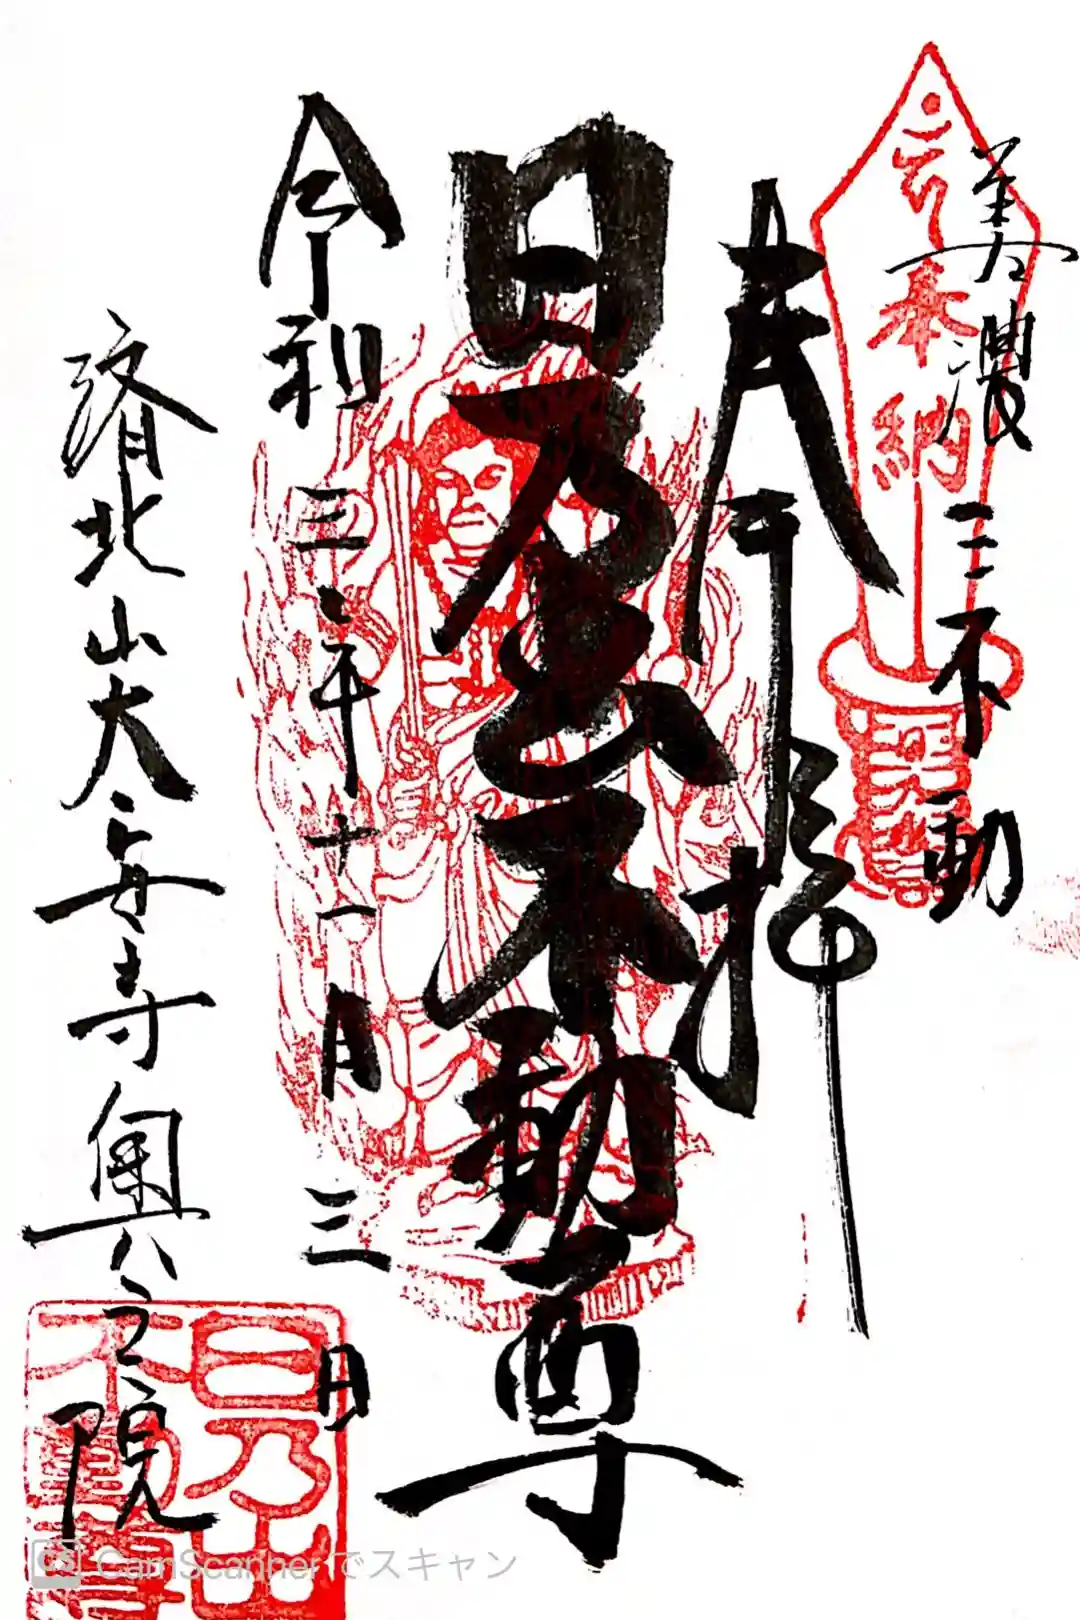 美濃三不動
奉拝
日乃出不動尊
令和三年十一月三日
済北山大安寺奥之院
奉納
日乃出
不動尊
CamScannerでスキャン